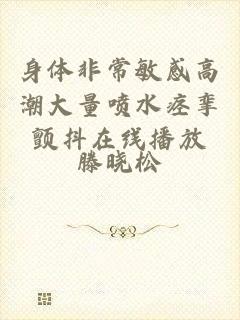 身体非常敏感高
潮大量喷水痉挛
颤抖在线播放
滕晓松